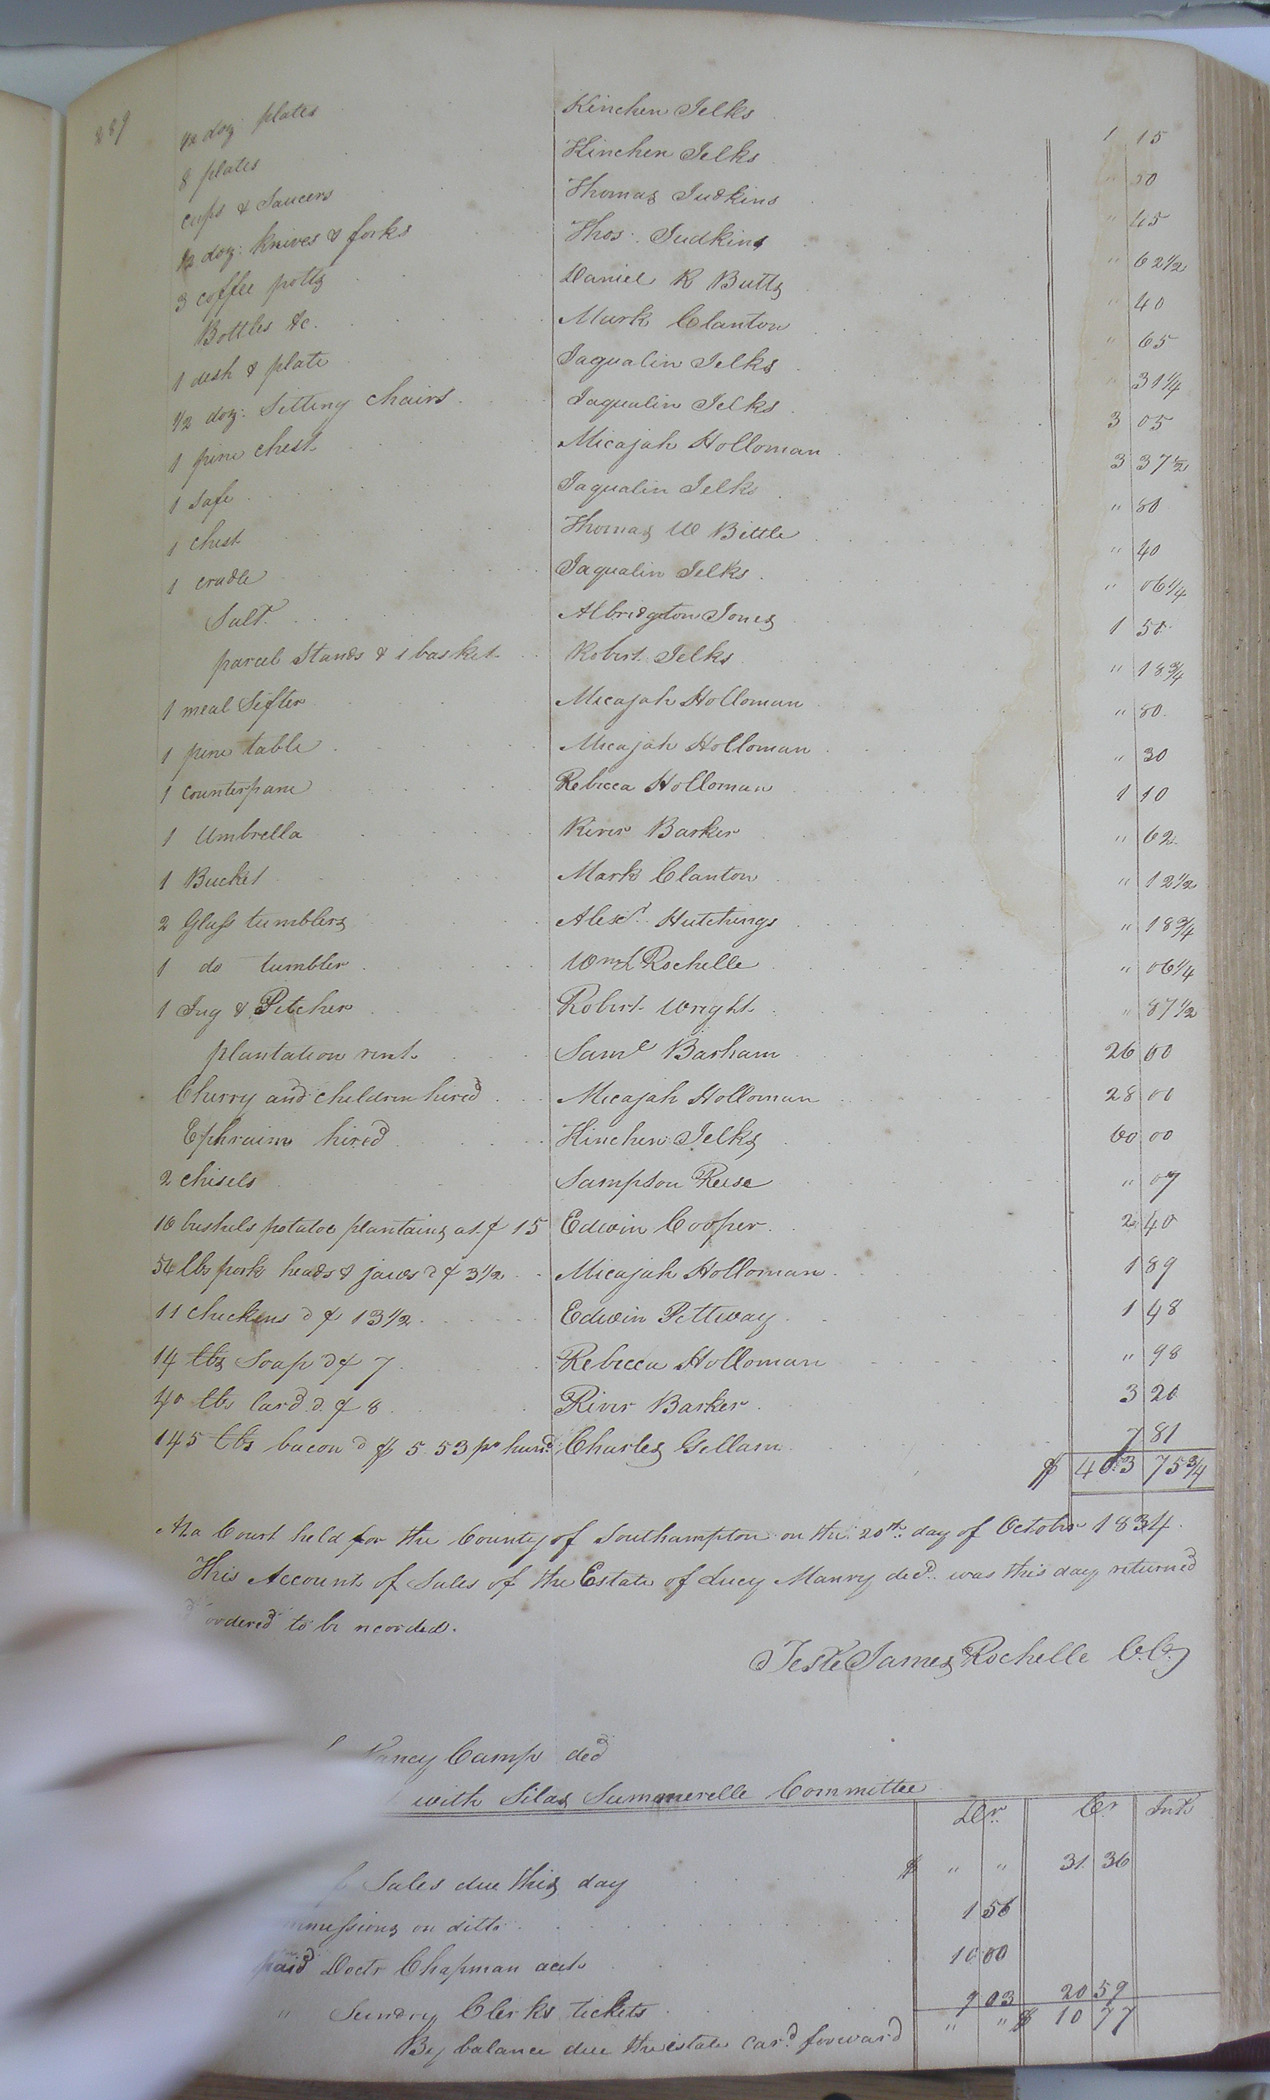 289
1/2 doz: plates Kinchen Jelks 1 15
8 plates Kinchen Jelks " 50
cups & Saucers Thomas Judkins " 45
1/2 doz: knives & forks Thos. Judkins " 62 1/2
3 coffee potts Daniel R Butts " 40
Bottles &c. Mark Clanton " 65
1 desh & plate Jaqualin Jelks " 31 1/4
1/2 doz: Sitting chairs Jaqualin Jelks 3 05
1 pine chest Micajah Holloman 3 37 1/2
1 safe Jaqualin Jelks " 80
1 chest Thomas W Bittle " 40
1 cradle Jaqualin Jelks " 06 1/4
Salt Albridgton Jones 1 50
parcel Stands & 1 basket Robert Jelks " 18 3/4
1 meal Sifter Micajah Holloman " 80
1 pine table Micajah Holloman " 30
1 counterpane Rebecca Holloman 1 10
1 Umbrella River Barker " 62
1 Bucket Mark Clanton " 12 1/2
2 Glass tumblers Alexr. Hutchings " 18 3/4
1 do tumbler Wm L Rochelle " 06 1/4
1 Jug & Pitcher Robert Wright " 87 1/2
plantation rent Saml Barham 26 00
Cherry and children hired Micajah Holloman 28 00
Ephraim hired Kinchen Jelks 60 00
2 chisels Sampson Reese " 07
16 bushels potatoe plantaing at ₵ 15 Edwin Cooper 2 40
54 lbs pork heads & jaws @ ₵ 3 1/2 Micajah Holloman 1 89
11 chickens @ ₵ 13 1/2 Edwin Pettway 1 48
14 lbs Soap @ ₵ 7 Rebecca Holloman " 98
40 lbs Lard @ ₵ 8 River Barker 3 20
145 lbs bacon @ $ 5 53 pr hund. Charles Gillam 7 81
$ 403 75 3/4
At a Court held for the County of Southampton on the 20th. day of October 1834.
This Account of Sales of the Estate of Lucy Manry decd. was this day returned
ordered to be recorded.
Teste James Rochelle C.C.
Nancy Camp decd
with Silas Summerelle Committee
Dr. Cr Int.
Sales due this day $ " " 31 36
mmissions on ditto 1 56
paid Doctr Chapman acct 10 00
" Sundry Clerks tickets 9 03 20 59
By balance due the estate card. forward " " $ 10 77